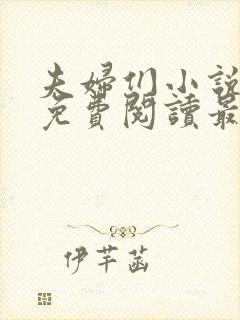 夫婦们小說
免費閱讀最
伊芊菡